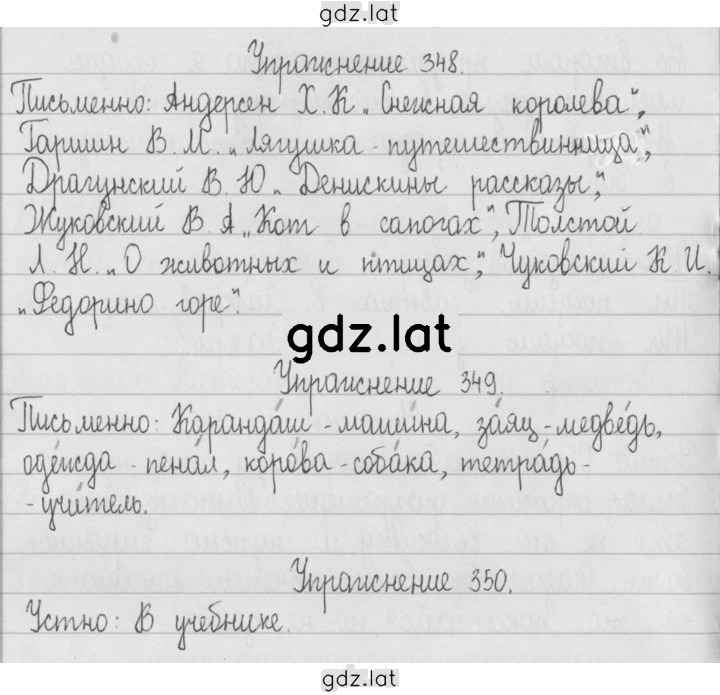 gdz.lat
Упражнение 348.
Письменно: Андерсен Х. К „Снежная королева",
Гаршин В. М. „Лягушка-путешественница",
Драгунский В. Ю. „Денискины рассказы",
Жуковский В А „Кот в сапогах", Толстой
Л. Н. „О животных и птицах", Чуковский К И.
„Федорино горе".
gdz.lat
Упражнение 349.
Письменно: Каранда́ш - маши́на, за́яц - медве́дь,
оде́жда - пена́л, коро́ва - соба́ка, тетра́дь -
- учи́тель.
Упражнение 350.
Устно: В учебнике.
gdz.lat